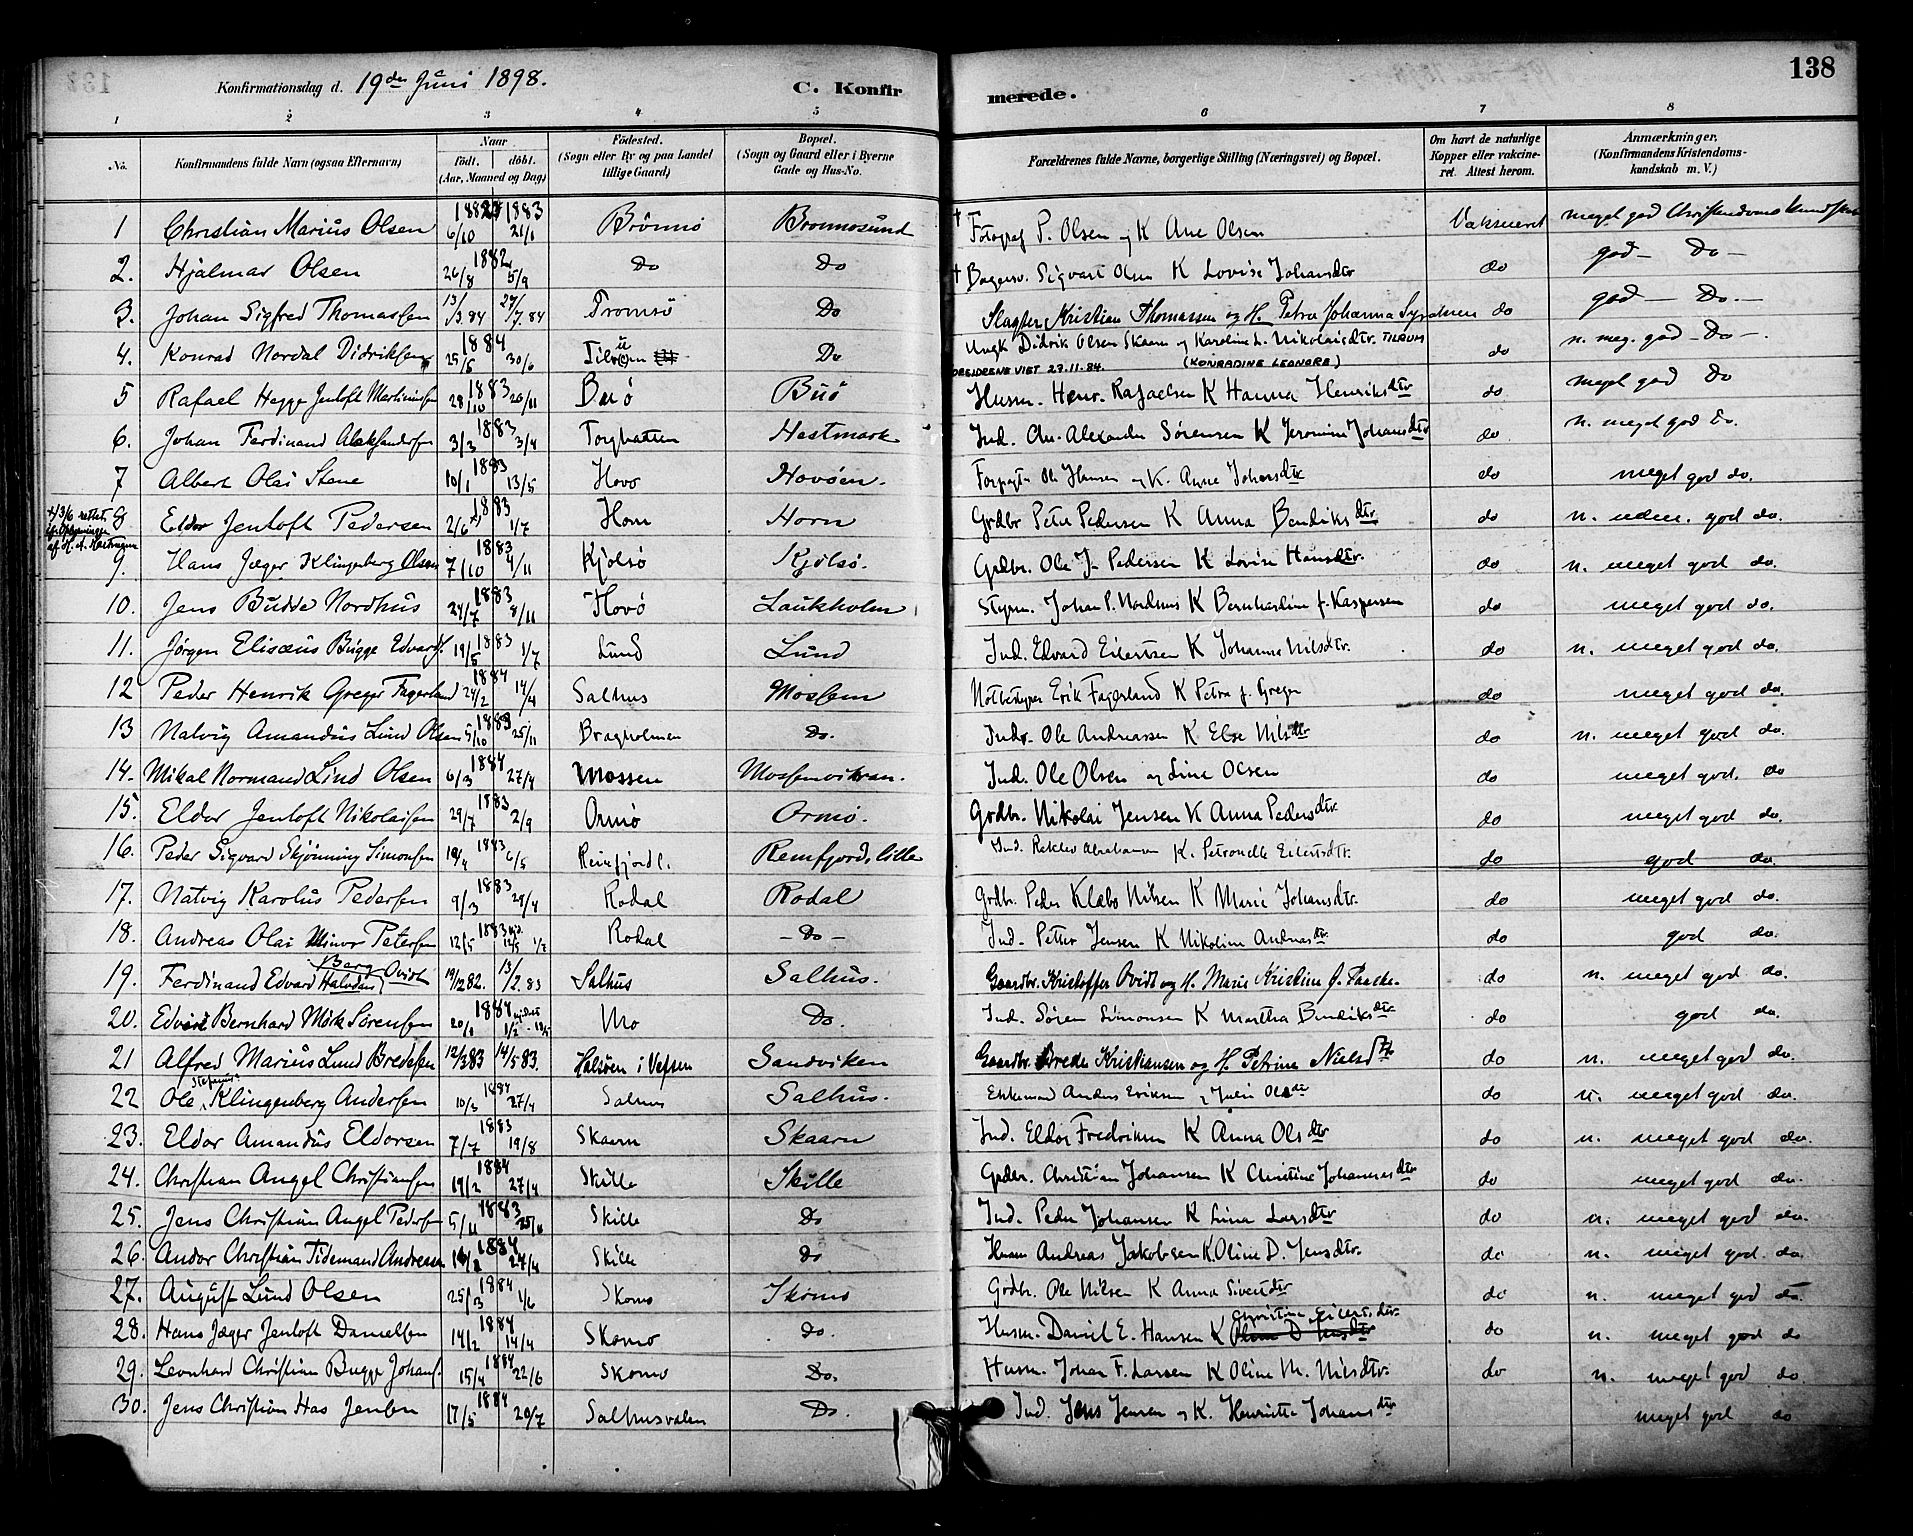 138
Konfirmationsdag d. 19de Juni 1898. C. Konfirmerede.
1 2 3 4 5 6 7 8
No. Konfirmandens fulde Navn (ogsaa Efternavn) Naar født. døbt. (Aar, Maaned og Dag) Fødested. (Sogn eller By og paa Landet tillige Gaard) Bopæl. (Sogn og Gaard eller i Byerne Gade og Hus-No. Forældrenes fulde Navne, borgerlige Stilling (Næringsvei) og Bopæl. Om havt de naturlige Kopper eller vakcineret. Attest herom. Anmærkninger. (Konfirmandens Kristendomskundskab m. V.)
1 Christian Marius Olsen 6/10 1883 21/1 Brønnø Brønnøsund † Fotograf P. Olsen og K Ane Olsen Vaksineret meget god Christendomskundskab
2. Hjalmar Olsen 26/8 1882 5/9 Do Do † Sigvart Olsen K Lovise Johansdtr do god - Do -
3. Johan Sigfred Thomassen 13/3.84 27/7.84 Tromsø Do Slagter Kristian Thomassen og H. Petra Johanna do god - Do. -
4. Konrad Nordal Didriksen 25/5 1884 30/6 Do Ungk Didrik Olsen Skaarn og Karoline L. Nikolaisdtr do n. meg. god - Do -
VIET 27.11.84. (KONRADINE LEONORE)
5 Rafael Hegge Jentoft Martinusen 28/10 1883 20/11 Buø Buø Husm. Henr. Rafaelsen K Hanna Henriksdtr do meget god Do
6. Johan Ferdinand Aleksandersen 3/3 1883 3/4 Torghatten Hestmark Ind. Alexander Sørensen K Jeromine Johansdtr do n. meget god Do.
7 Albert Olai Stene 10/1 1883 13/5 Hovø Hovøen. Ole Hansen og K. Anne Johansdtr do meget god do.
8 Eldor Jentoft Pedersen 2/6 1883 1/7 Horn Horn Grdbr Peter Pedersen K Anna Bendiksdtr do n. god do.
9. Hans Jæger Klingenberg Olsen 7/10 1883 4/11 Kjølsø Kjølsø. Grdbr. Ole J. Pedersen K Lovise Hansdtr. do n. meget god do.
10. Jens Budde Nordhus 24/7 1883 8/11 Hovø Laukholm Styrm. Johan P. Nordhus K Bernhardine f. Kaspersen do meget god do.
11. Jørgen Elisæus Bugge Edvards. 19/5 1883 1/7 Lund Lund Ind. Edvard Eilertsen K Johanna Nilsdtr. do n. meget god do.
12 Peder Henrik Greger Fagerland 24/2 1884 14/4 Salhus Mossem Erik Fagerland K Petra f. Greger do meget god do.
13 Natvig Amandus Lund Olsen 5/10 1883 25/11 Bragholmen Do. Indr. Ole Andreassen K Else Nilsdtr do n. meget god do.
14. Mikal Normand Lind Olsen 6/3 1884 27/4 Mossem Ind. Ole Olsen og Line Olsen do meget god. do
15. Eldor Jentoft Nikolaisen 29/7 1883 2/9 Ormø Ormø. Grdbr. Nikolai Jensen K Anna Pedersdtr. do meget god do.
16. Peder Sigvard Skjønning Simonsen 19/4 1883 6/5 Reinfjord l. Remfjord, lille Ind. K. Petronelle Eilertsdtr. do god do.
17. Natvig Karolus Pedersen 9/3 1883 29/4 Rodal Rodal Grdbr. Peder Klæbo Nilsen K Marie Johansdtr. do meget god do.
18. Andreas Olai Minor Petersen 12/5 1883 Rodal - Do - Ind. Petter Jensen K Nikoline Andreasdtr do god do.
19. Ferdinand Edvard Halvdan Berg Qvidt 19/12 82. 13/2. 83 Salhus Salhus. Gaardbr. Kristoffer Qvidt og H. Marie Kristine do n. meget god do.
20. Edvard Bernhard Mörk Sørensen 20/1 1884 Mo Do. Ind. Søren Simonsen K Martha Bendiksdtr do god do.
21 Alfred Marius Lund Bredesen 12/3 83 14/5 83. Halsøen i Vefsen Sandviken Gaardbr. Brede Kristiansen og H. Petrine Nielsdtr do n. meget god do.
22 Ole Klingenberg Andersen 10/3 1884 27/4 Salhus Salhus. Anders Eriksen og Julie Olsdtr do n. meget god do.
23. Eldor Amandus Eldorsen 7/7 1883 19/8 Skaarn Skaarn Ind. Eldor Fredriksen K Anna Olsdtr do n. meget god do.
24. Christian Angel Christiansen 19/2 1884 27/4 Skille Skille Grdbr. Christian Johansen K Christine Johannesdtr do meget god do.
25. Jens Christian Angel Pedersen 5/11 1883 Skille Do Ind. Peder Johansen K Lina Larsdtr do n. meget god do.
26. Andor Christian Tidemand Andreasen 1884 27/4 Skille Do Husm Andreas Jakobsen K. Oline D. Jensdtr. do n. meget god do.
27. August Lund Olsen 25/3 1884 1/6 Skomo Skomo Grdbr. Ole Nilsen K Anna Sivertdtr do n. meget god do.
28. Hans Jæger Jentoft Danielsen 14/2 1884 14/4 Skomo do. Husm. Daniel E. Hansen K Christine Eilertsdtr. do n. meget god do
29. Leonhard Christian Bugge Johans. 15/4 1884 22/6 Skomo Do. Husm. Johan F. Larsen K Oline M. Nilsdtr. do n. meget god do.
30. Jens Christian Has Jensen 17/5 1884 20/7 Salhusvalen Do. Ind. Jens Jensen og K. Henrikke Johansdtr meget god do